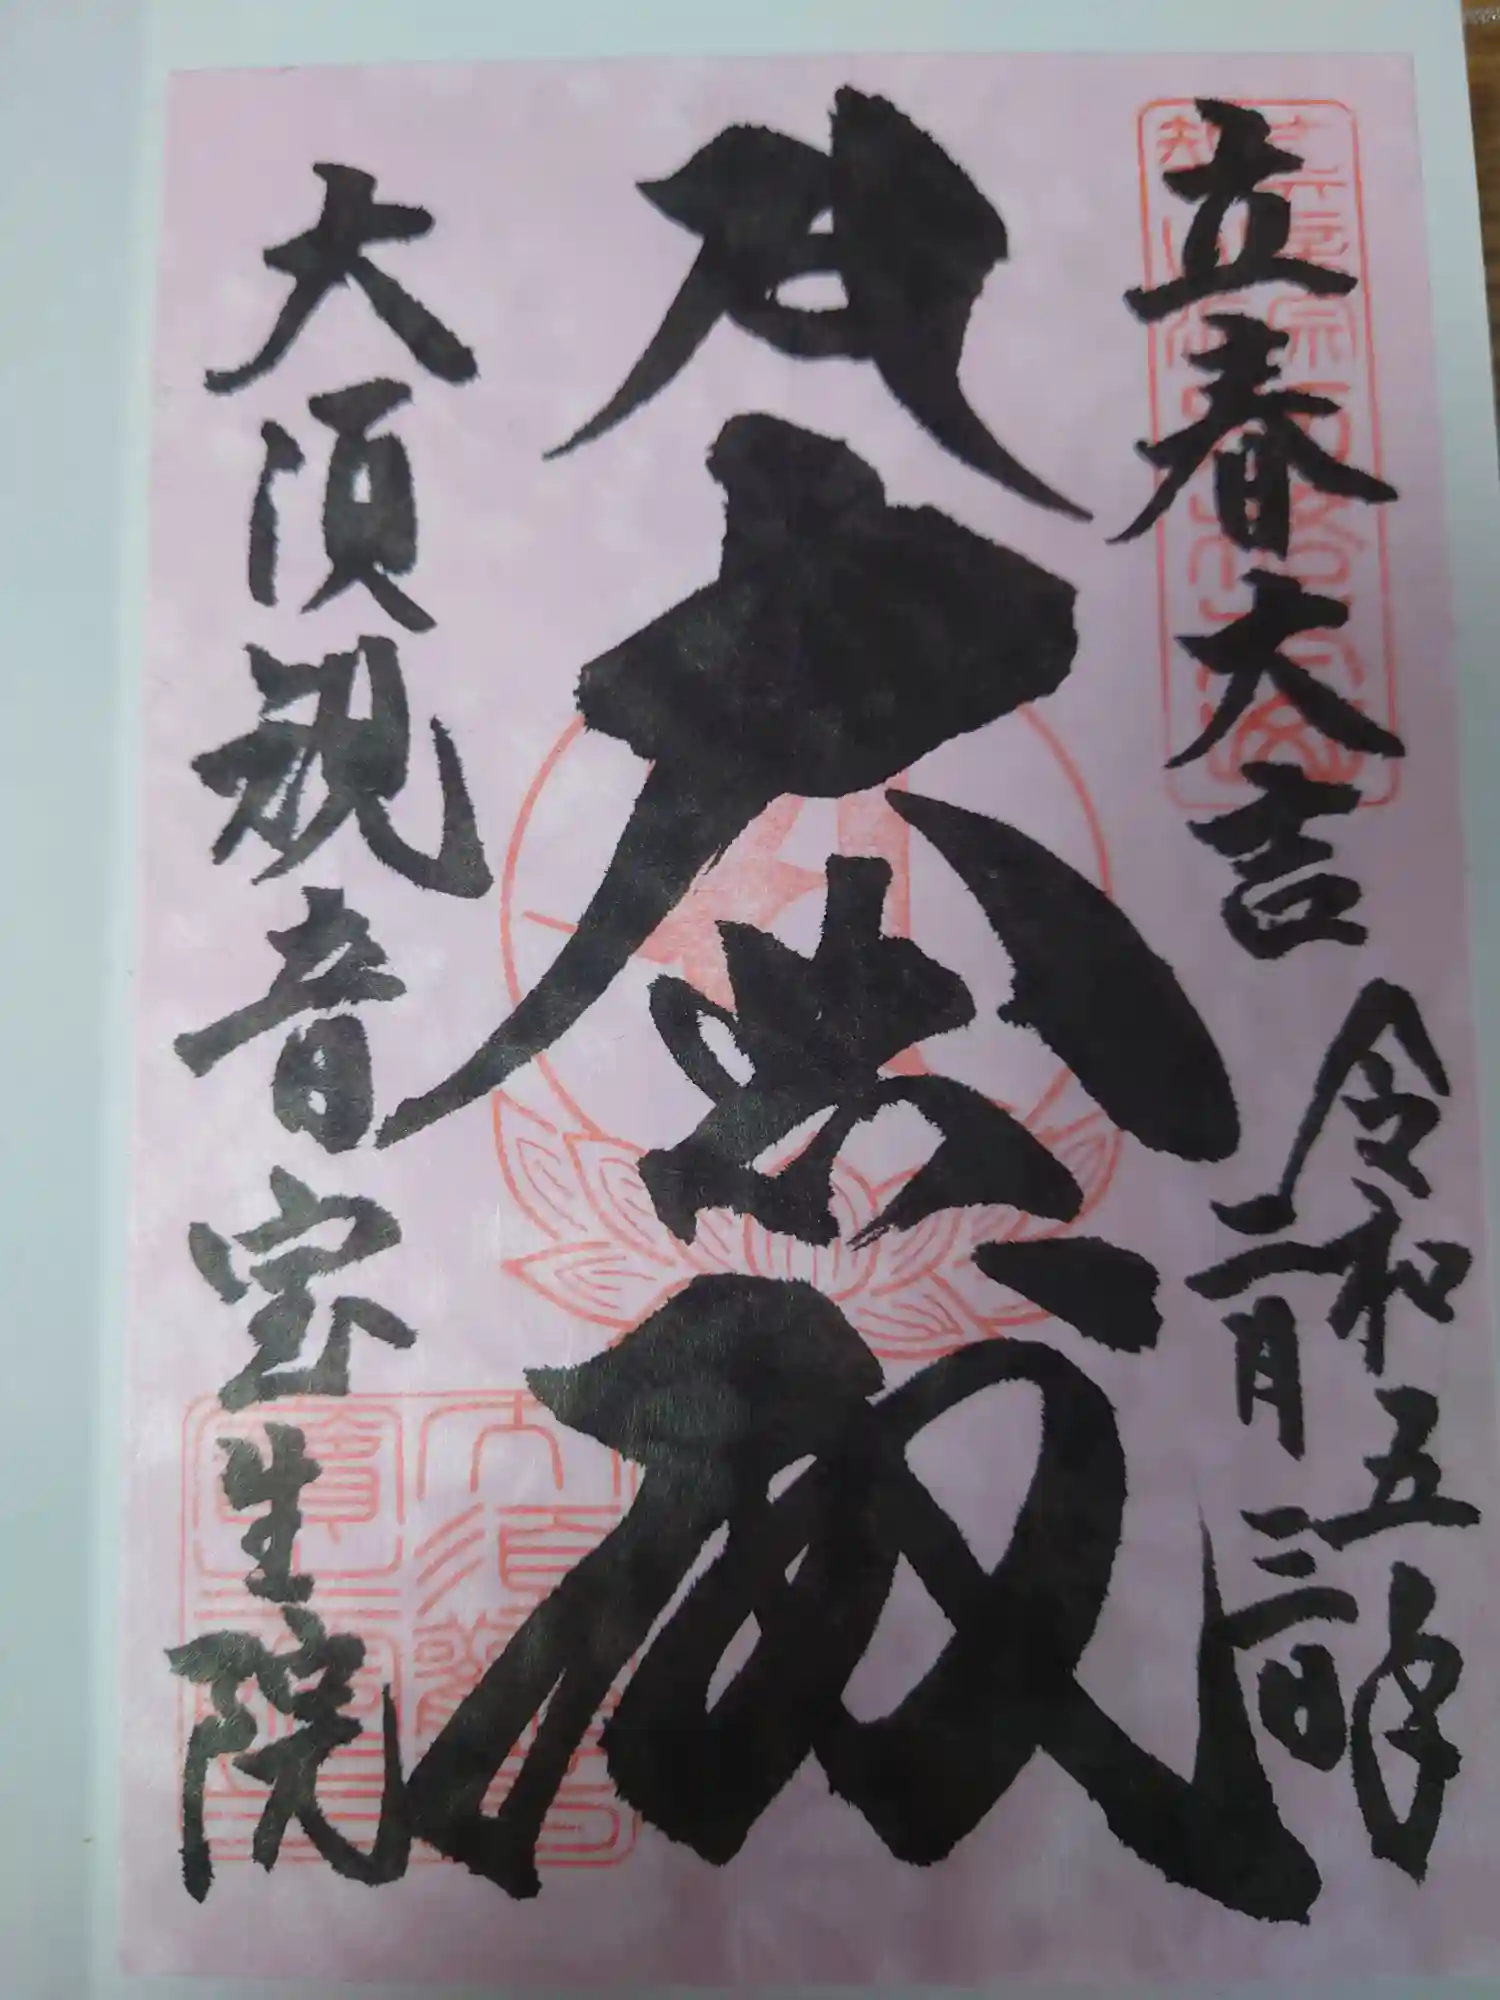 立春大吉
令和五年
二月三日
大悲殿
大須観音宝生院